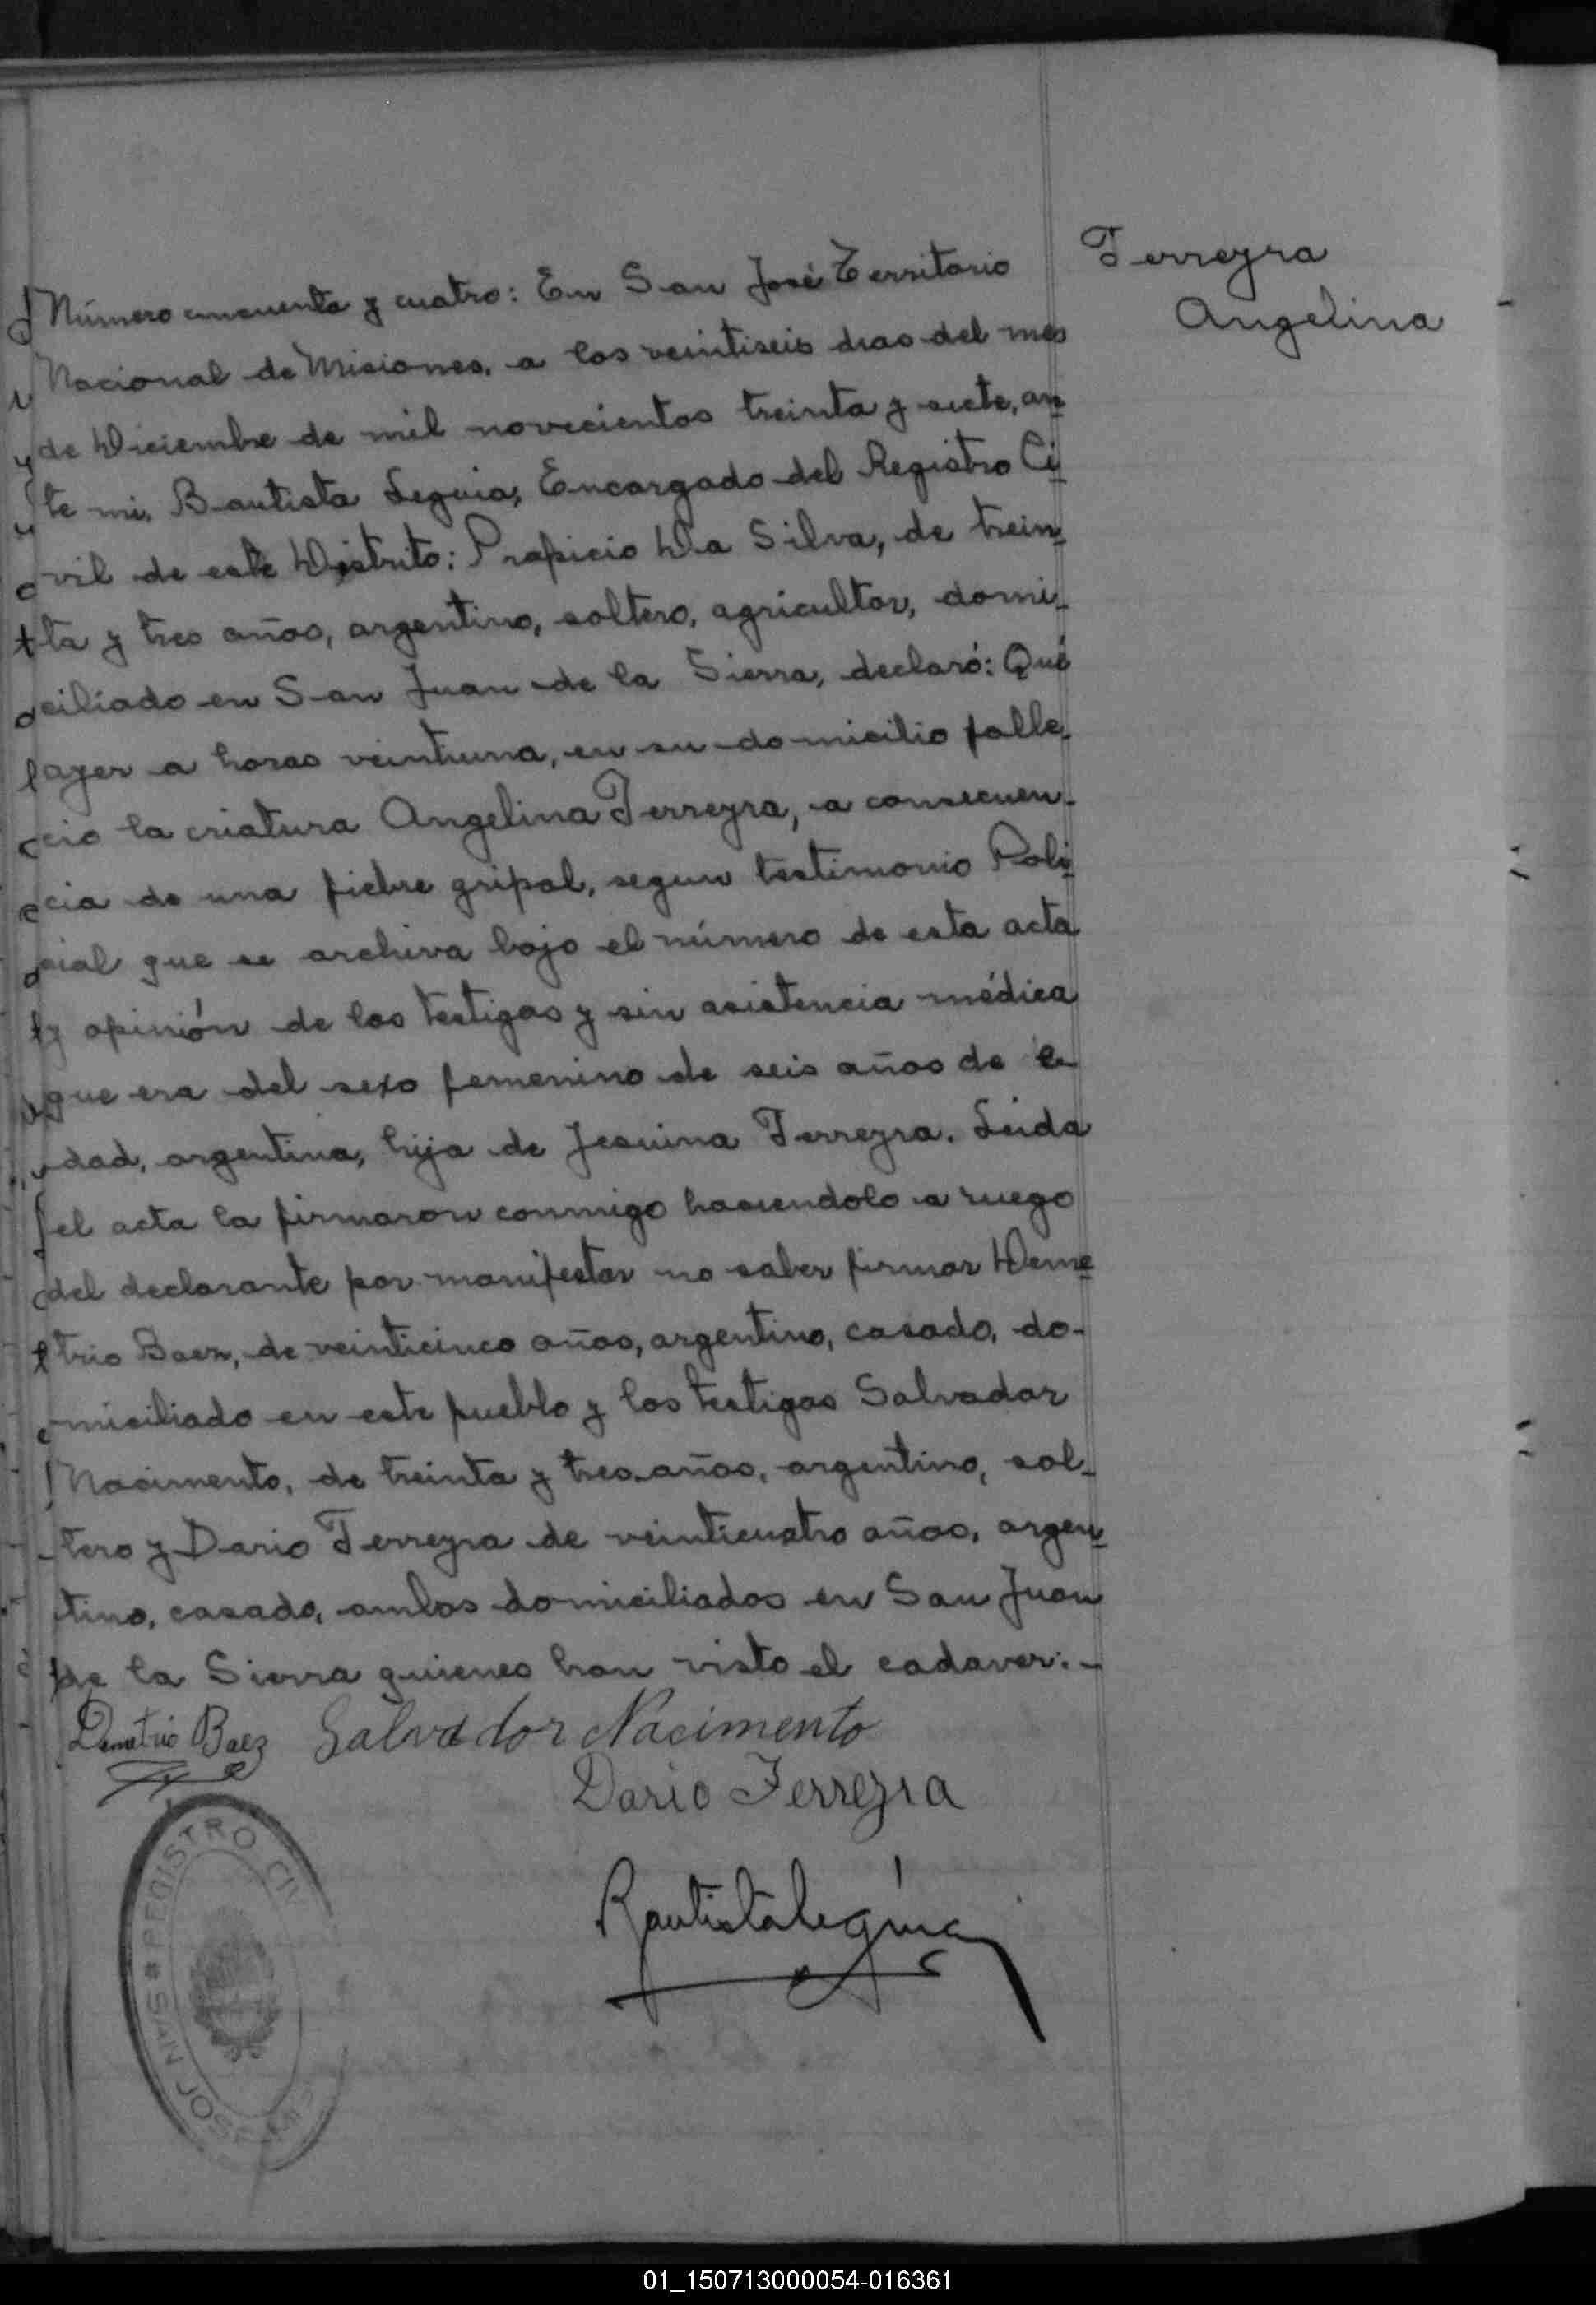 Ferreyra
Angelina
Número cincuenta y cuatro: En San José Territorio
Nacional de Misiones, a los veintiseis dias del mes
de Diciembre de mil novecientos treinta y siete, an
te mi, Bautista Leguia, Encargado del Registro Ci
vil de este Distrito: Propicio Da Silva, de trein
ta y tres años, argentino, soltero, agricultor, domi
ciliado en San Juan de la Sierra, declaró: Qué
ayer a horas veintiuna, en su domicilio falle
cio la criatura Angelina Ferreyra, a consecuen
cia de una fiebre gripal, segun testimonio Poli
cial que se archiva bajo el número de esta acta
y opinión de los testigos y sin asistencia médica
que era del sexo femenino de seis años de e
dad, argentina, hija de Jesuina Ferreyra. Leida
el acta la firmaron conmigo haciendolo a ruego
del declarante por manifestar no saber firmar Deme
trio Baez, de veinticinco años, argentino, casado, do-
miciliado en este pueblo y los testigos Salvador
Nacimento, de treinta y tres años, argentino, sol-
tero y Dario Ferreyra de veinticuatro años, argen
tino, casado, ambos domiciliados en San Juan
de la Sierra quienes han visto el cadaver.-
Demetrio Baez Salvador Nacimento
Dario Ferreyra
Bautista Leguia
REGISTRO CIV
SAN JOSE
01_150713000054-016361